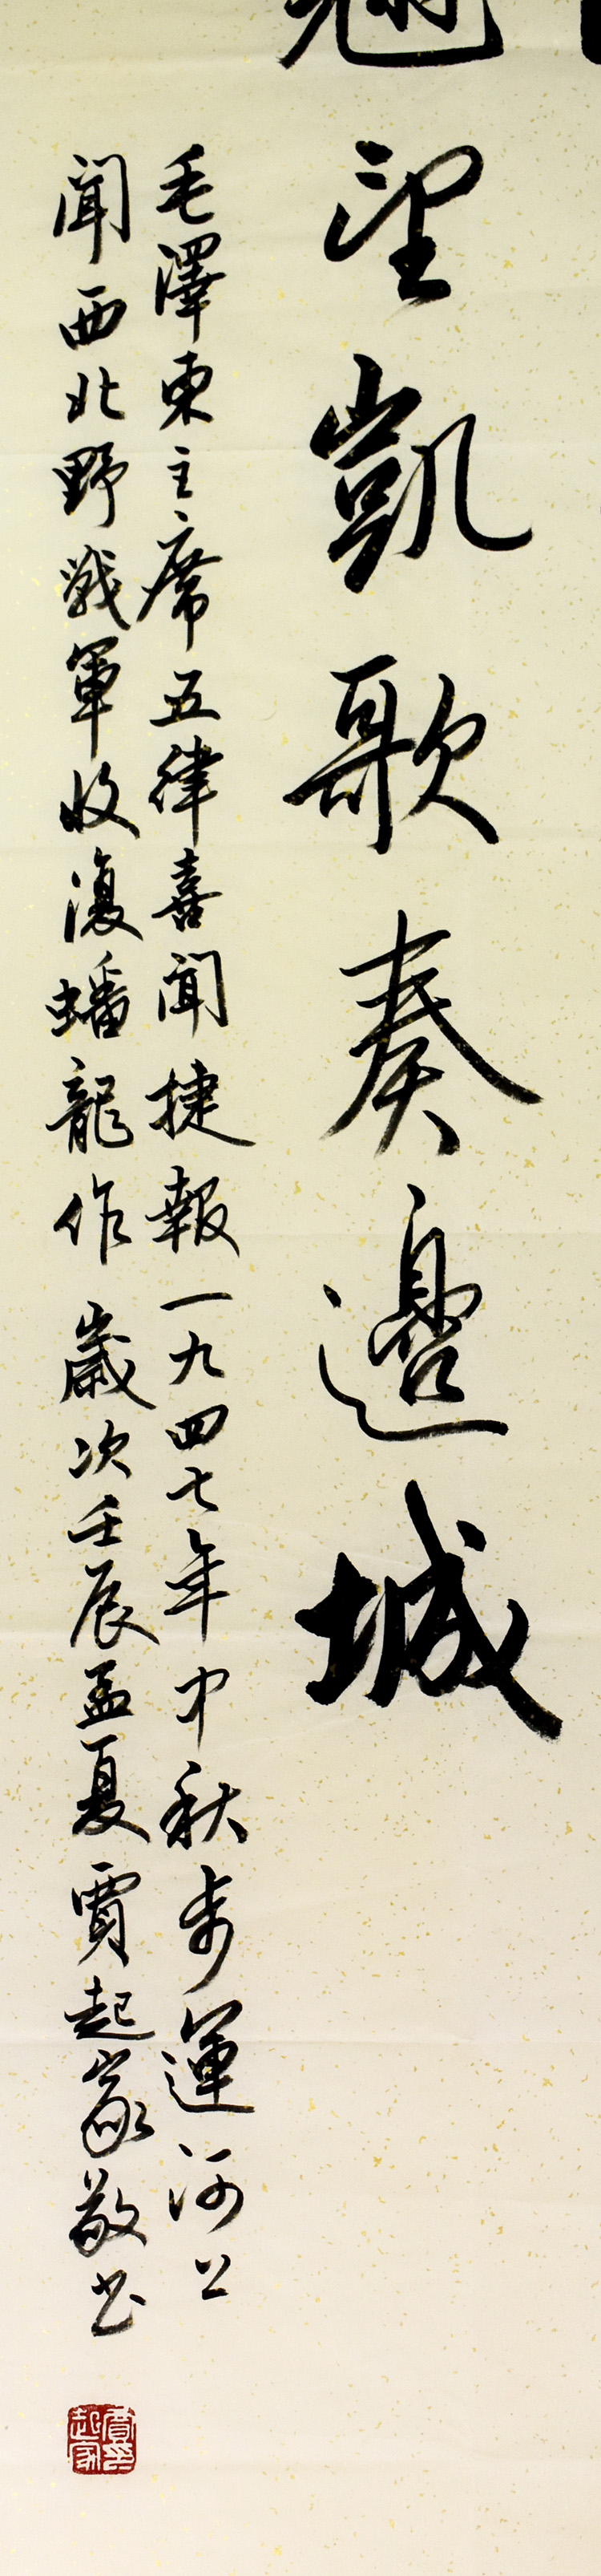 望凱歌奏邊城
毛澤東主席五律喜聞捷報一九四七年中秋步運河上
聞西北野戰軍收復蟠龍作 歲次壬辰孟夏 賈起家敬书
賈印起家